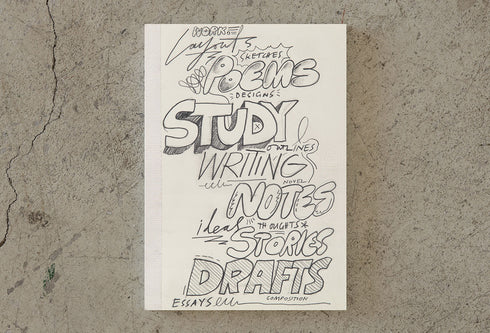 WORK
Layouts
SKETCHES
POEMS
DESIGNS
STUDY
OUTLINES
WRITING
NOVEL
NOTES
ideas
THOUGHTS
STORIES
DRAFTS
ESSAYS
COMPOSITION